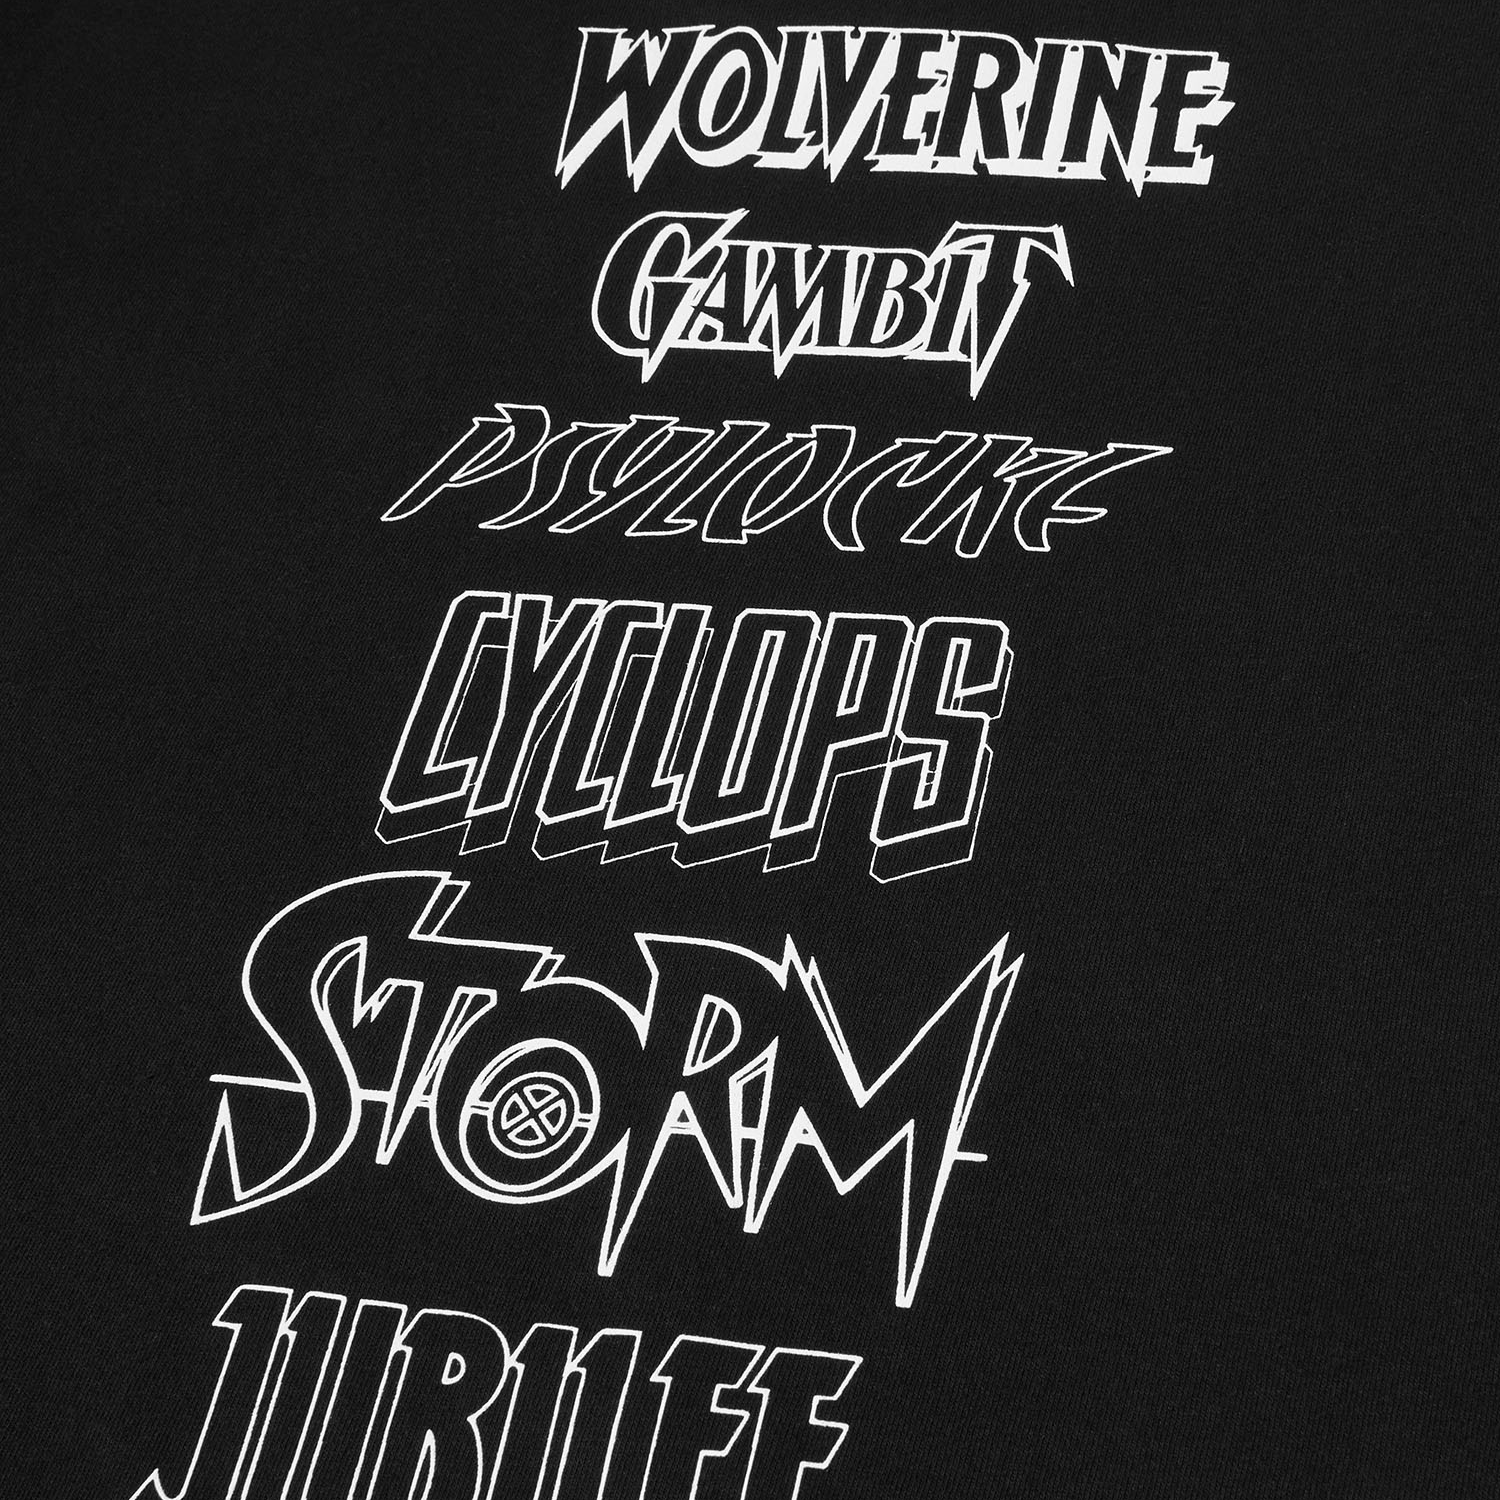 WOLVERINE
GAMBIT
PSYLOCKE
CYCLOPS
STORM
JUBILEE